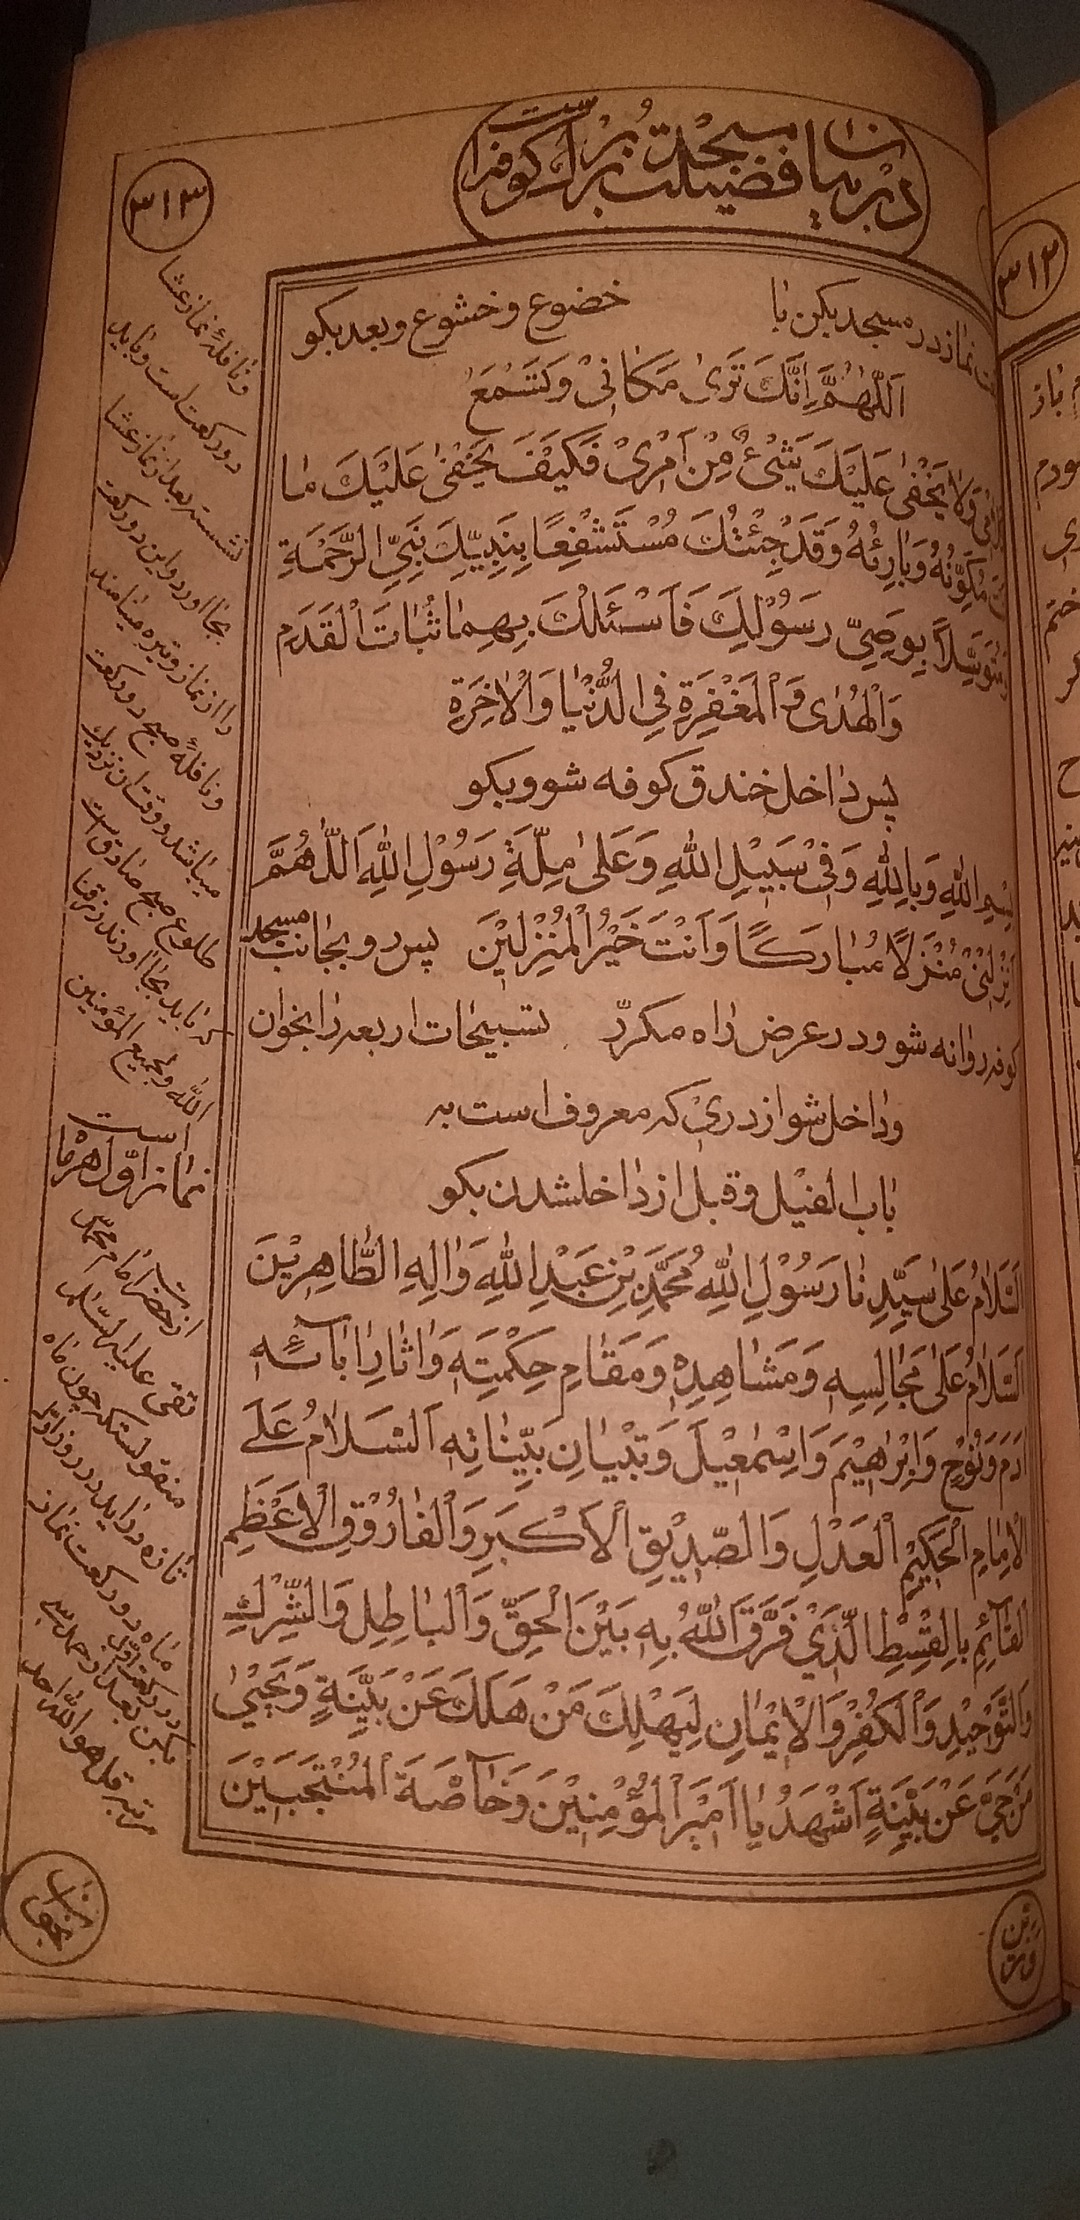 در بیان فضیلت مسجد بزرگ کوفه است
٣١٣
نماز در مسجد بکن با خضوع و خشوع و بعد بکو
اَللّٰهُمَّ اِنَّكَ تَرىٰ مَكٰانىْ وَتَسْمَعُ
وَلاٰ يَخْفىٰ عَلَيْكَ شَىْءٌ مِنْ اَمْرىْ فَكَيْفَ يَخْفىٰ عَلَيْكَ مٰا
مُكَوِّنُهُ وَبٰارِئُهُ وَقَدْ جِئْتُكَ مُسْتَشْفِعًا بِنَبِيِّكَ نَبِيِّ الرَّحْمَةِ
وَمُتَوَسِّلاً بِوَصِيِّ رَسُوْلِكَ فَاَسْئَلُكَ بِهِمٰا ثَبٰاتَ الْقَدَمِ
وَالْهُدىٰ وَالْمَغْفِرَةِ فِى الدُّنْيٰا وَالْاٰخِرَةِ
پس داخل خندق کوفه شو و بکو
بِسْمِ اللّٰهِ وَبِاللّٰهِ وَفِىْ سَبِيْلِ اللّٰهِ وَعَلىٰ مِلَّةِ رَسُوْلِ اللّٰهِ اَللّٰهُمَّ
اَنْزِلْنىْ مُنْزَلاً مُبٰارَكًا وَاَنْتَ خَيْرُ الْمُنْزِلِيْنَ پس رو بجانب مسجد
کوفه روانه شو و در عرض راه مکرّر تسبیحات اربعه را بخوان
و داخل شو از دری که معروف است به
باب الفیل و قبل از داخلشدن بکو
اَلسَّلاٰمُ عَلىٰ سَيِّدِنٰا رَسُوْلِ اللّٰهِ مُحَمَّدِ بْنِ عَبْدِ اللّٰهِ وَاٰلِهِ الطّٰاهِرِيْنَ
اَلسَّلاٰمُ عَلىٰ مَجٰالِسِهِ وَمَشٰاهِدِهِ وَمَقٰامِ حِكْمَتِهِ وَاٰثٰارِ اٰبٰآئِهِ
اٰدَمَ وَنُوْحٍ وَاِبْرٰهِيْمَ وَاِسْمٰعِيْلَ وَتِبْيٰانِ بَيِّنٰاتِهِ اَلسَّلاٰمُ عَلَى
الْاِمٰامِ الْحَكِيْمِ الْعَدْلِ وَالصِّدِّيْقِ الْاَكْبَرِ وَالْفٰارُوْقِ الْاَعْظَمِ
الْقٰآئِمِ بِالْقِسْطِ الَّذِيْ فَرَّقَ اللّٰهُ بِهِ بَيْنَ الْحَقِّ وَالْبٰاطِلِ وَالشِّرْكِ
وَالتَّوْحِيْدِ وَالْكُفْرِ وَالْاِيْمٰانِ لِيَهْلِكَ مَنْ هَلَكَ عَنْ بَيِّنَةٍ وَيَحْيىٰ
مَنْ حَيَّ عَنْ بَيِّنَةٍ اَشْهَدُ يٰا اَمِيْرَ الْمُؤْمِنِيْنَ وَخٰآصَّةَ الْمُنْتَجَبِيْنَ
و نافلهٔ نماز عشا
دو رکعت است و باید
نشسته بعد از نماز عشا
بجا اورد و این دو رکعت
را نماز وتیره مینامند
و نافلهٔ صبح دو رکعت
میباشد و وقت ان نزدیک
طلوع صبح صادق است
که باید بجا اورند رزقنا
الله و لجمیع المؤمنین
نماز اوّل هر ماه است
از حضرت امام محمد
تقی علیه السّلام
منقولست که چون ماه
تازه در اید در روز اوّل
ماه دو رکعت نماز
بکن بعد از حمد
در رکعت اوّل
قل هو الله احد
٣١٢